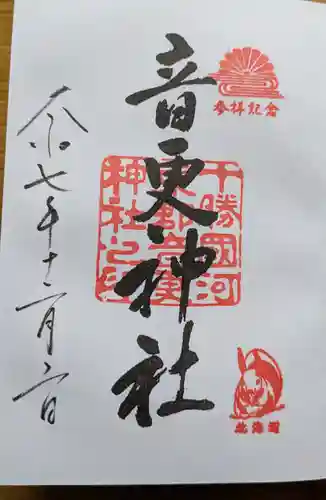 参拝記念
音更神社
十勝國河東郡音更神社之印
令和七年十二月二日
北海道